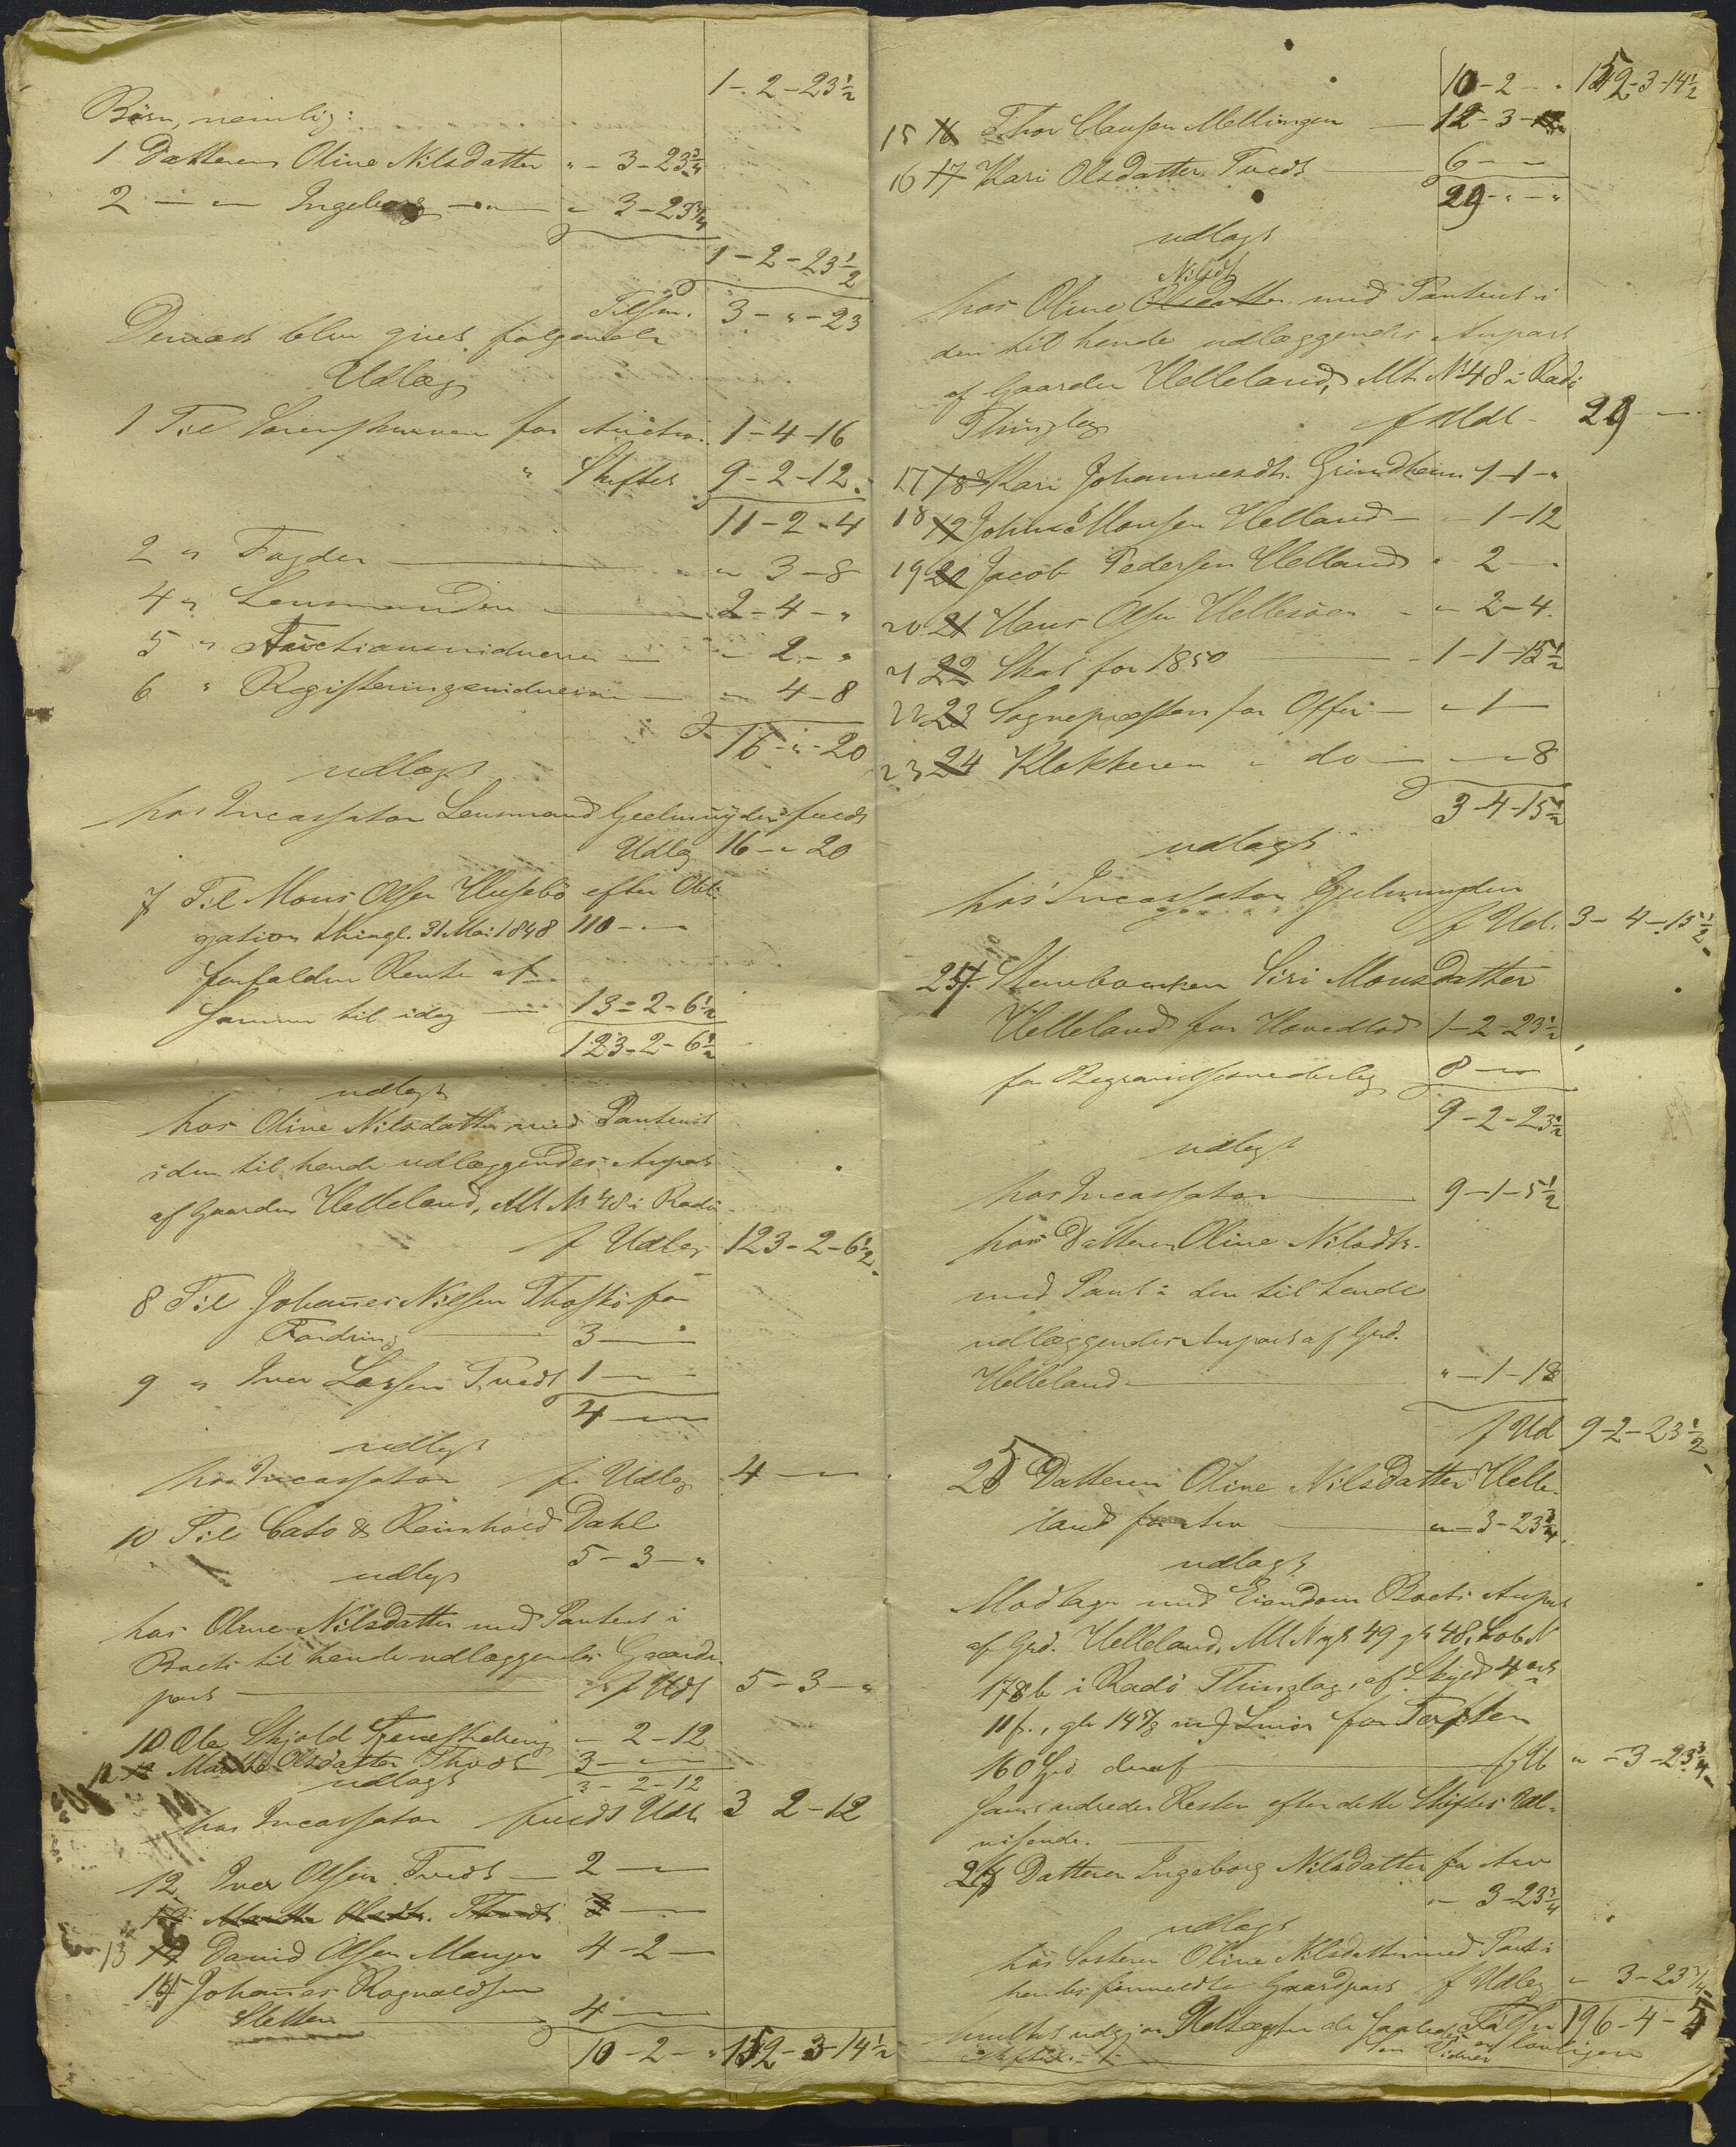 1 - 2 - 23½
Börn, nemlig:
1 Datteren Oline Nilsdatter " - 3 - 23¾
2 — " — Ingeborg — " — " - 3 - 23¾
1 - 2 - 23½
Tilsm. 3 - " - 23
Dernæst blev givet følgende
Udlæg
1 Til Sorenskriveren for Auction 1 - 4 - 16
" Skiftet 9 - 2 - 12
11 - 2 - 4
2 " Fogden — " 3 - 8
4 " Lensmanden — 2 - 4 - "
5 " Auctionsvidnerne — " 2 - "
6 " Registeringsvidnerne — " 4 - 8
16 - " - 20
udlagt
hos Incassator Lensmand Geelmuyden fuldt
Udlæg 16 - " 20
7 Til Mons Olsen Husebö efter Obli-
gation thingl. 31 Mai 1848 110 - "
forfalden Rente af
samme til idag — 13 - 2 - 6½
123 - 2 - 6½
udlagt
hos Oline Nilsdatter med Panteret
i den til hende udlæggendes Anpart
af Gaarden Helleland, Mt. Nr 48 i Radö
f Udlæg 123 - 2 - 6½
8 Til Johanes Nilsen for
Fordring — 3 —
9 " Iver Larsen Tvedt 1 — "
4 —
udlagt
hos Incassator f. Udlæg 4 —
10 Til Cato & Reinhold Dahl
5 - 3 - "
udlagt
hos Oline Nilsdatter med Panteret i
Boets til hende udlæggendes Gaards-
part — f Udl 5 - 3 - "
10 Ole Skjold — " 2 - 12
12 Martha Olsdatter 3 —
udlagt 3 - 2 - 12
hos Incassator fuldt Udl. 3 2 - 12
12 Iver Olsen Tvedt — 2 —
13 14 David Olsen Manger 4 - 2 —
14 Johanes Rognaldsen
Sletten — 4 —
10 - 2 - " 152 - 3 - 14½
10 - 2 - " 152 - 3 - 14½
15 16 Thor Clausen Mellingen — 12 - 3 -
16 17 Kari Olsdatter Tvedt — 6 - "
29 - " - "
udlagt
Nilsdt
hos Oline Olsdatter med Panteret i
den til hende udlæggendes Anpart
af Gaarden Helleland, Mt. Nr 48 i Radö
Thinglag f Udl - 29 —
17 18 Kari Johannesdt. Grindheim 1 - 1 - "
18 19 Johns Monsen Helland — " 1 - 12
19 20 Jacob Pedersen Helland " 2 — "
20 21 Hans Olsen Hellesöen - " 2 - 4
21 22 Skat for 1850 — 1 - 1 - 15½
22 23 Sognepræsten for Offer — " 1 —
23 24 Klokkeren " do — " " 8
3 - 4 - 15½
udlagt
hos Incassator Gjelmuyden
f Udl. 3 - 4 - 15½
24 Stervboenken Siri Monsdatter
Helleland for Hovedlod 1 - 2 - 23½
for Begravelsesvederlag 8 - "
9 - 2 - 23½
udlagt
hos Incassator — 9 - 1 - 5½
hos Datteren Oline Nilsdtr.
med Pant i den til hende
udlæggendes Anpart af Grd.
Helleland — " - 1 - 18
f Udl 9 - 2 - 23½
25 Datteren Oline Nilsdatter Helle-
land for Arv — " - 3 - 23¾
udlagt
Modtager med Eiendom Boets Anpart
af Grd. Helleland, Mt Nyt 49 gt 48, Lob N
178 b i Radö Thinglag, af Skyld 4 ort
11 s., gl. 14⅝ mk Smör for Taxten
160 Spd. deraf — f Ud " - 3 - 23¾
samt udreder Resten efter dette Skiftes Ud-
visende.
26 Datteren Ingeborg Nilsdatter for Arv
" 3 - 23¾
udlagt
hos Søsteren Oline Nilsdatter med Pant i
hendes formeldte Gaardpart f Udlæg " 3 - 23¾
hvilket udgjør Udlægten de Tilsm 196 - 4 - 5